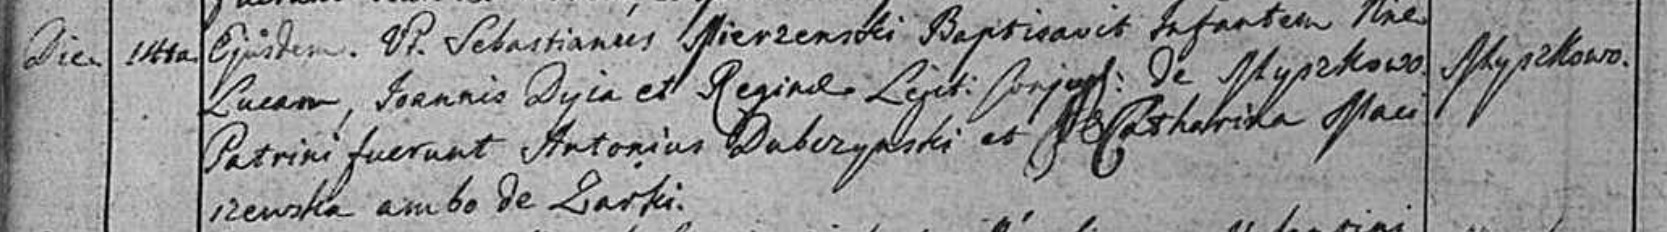 Die 14ta Ejusdem. VP. Sebastianus Mierzenski Baptisavit Infantem Nne Myszkowo.
Lucam, Joannis Dyia et Reginæ Legit: Conjug: De Myszkowo.
Patrini fuerunt Antonius Dubczynski et Catharina Maci
szewska ambo de Zarki.